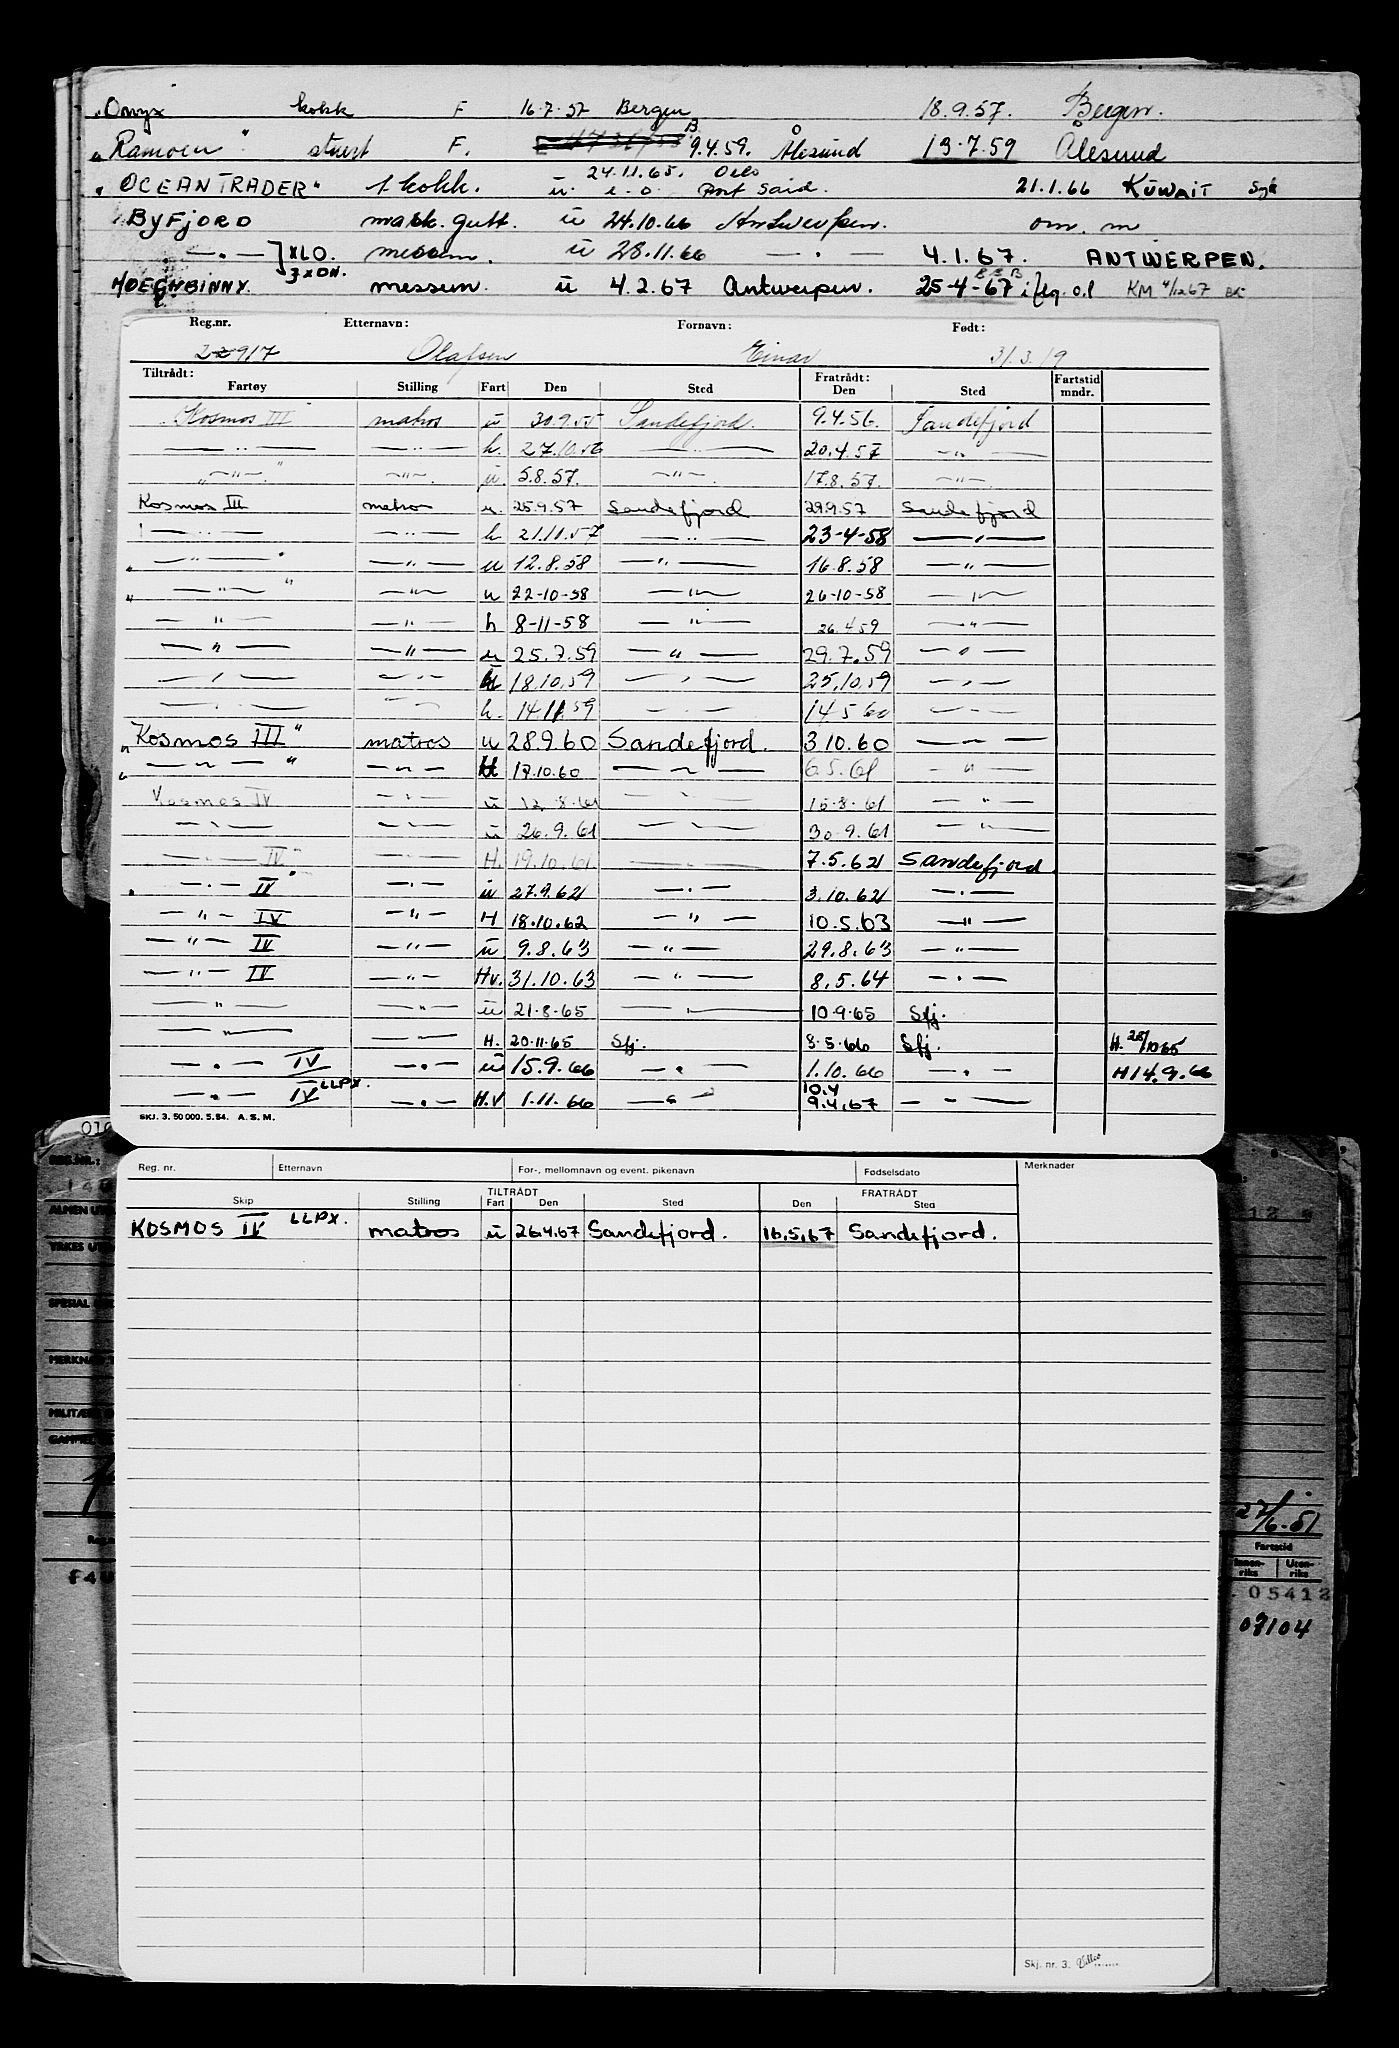 Onyx kokk F 16.7.57 Bergen 18.9.57. Bergen.
"Ramoen" stuert F. B 9.4.59. Ålesund 13.7.59 Ålesund
24.11.65. Oslo
"OCEANTRADER" 1 kokk. ü. i.o. Port Said. 21.1.66 KUWAIT Syk
BYFJORD mask. gutt. ü 24.10.66 Antwerpen. om. m
— " — ]XLO. messem. ü 28.11.66 — " — 4.1.67. ANTWERPEN.
3XDN.
HOEGHBINNY. messem. ü 4.2.67 Antwerpen. 25-4-67 i flg. o.l KM 4/1267
Reg.nr. Etternavn: Fornavn: Født:
22917 Olafsen Einar 31.3.19
Tiltrådt: Fratrådt: Fartstid
Fartøy Stilling Fart Den Sted Den Sted mndr.
Kosmos III matros ü 30.9.55 Sandefjord. 9.4.56. Sandefjord
— " — — " — h. 27.10.56 — " — 20.4.57 — " —
— " — — " — ü. 5.8.57. — " — 17.8.57. — " —
Kosmos III matros u 25.9.57 Sandefjord 29.9.57 Sandefjord
— " — — " — h 21.11.57 — " — 23-4-58 — " —
— " — — " — u 12.8.58 — " — 16.8.58 — " —
— " — — " — u 22-10-58 — " — 26-10-58 — " —
— " — — " — h 8-11-58 — " — 26.4.59 — " —
— " — — " — u 25.7.59 — " — 29.7.59 — " —
— " — — " — ü 18.10.59 — " — 25.10.59 — " —
— " — — " — h. 14.11.59 — " — 14.5.60 — " —
"Kosmos III" matros u 28.9.60 Sandefjord. 3.10.60 — " —
— " — — " — H 17.10.60 — " — 6.5.61 — " —
Kosmos IV — " — ü 12.8.61 — " — 15.8.61 — " —
— " — — " — ü 26.9.61 — " — 30.9.61 — " —
— " — IV" — " — H. 19.10.61 — " — 7.5.62 Sandefjord
— " — IV" — " — ü 27.9.62 — " — 3.10.62 — " —
— " — IV — " — H 18.10.62 — " — 10.5.63 — " —
— " — IV — " — ü 9.8.63 — " — 29.8.63 — " —
— " — IV — " — Hv. 31.10.63 — " — 8.5.64 — " —
— " — — " — ü 21-8-65 — " — 10.9.65 Sfj.
— " — — — H. 20.11.65 Sfj. 8.5.66 Sfj. H. 28/10 65
— " — IV — " — ü 15.9.66 — " — 1.10.66 — " — H 14.9.66
— " — IV LLPX. — " — H.V 1.11.66 — " — 10.4 9.4.67 — " —
SKJ. 3. 50 000. 5. 54. A. S. M.
010
REG.NR.:
Reg. nr. Etternavn For-, mellomnavn og event. pikenavn Fødselsdato Merknader
TILTRÅDT FRATRÅDT
Skip Stilling Fart Den Sted Den Sted
KOSMOS IV LLPX. matros ü 26.4.67 Sandefjord. 16.5.67 Sandefjord.
27/6-51
Fartstid
Innen- Uten-
riks riks
05412
09104
Skj. nr. 3.